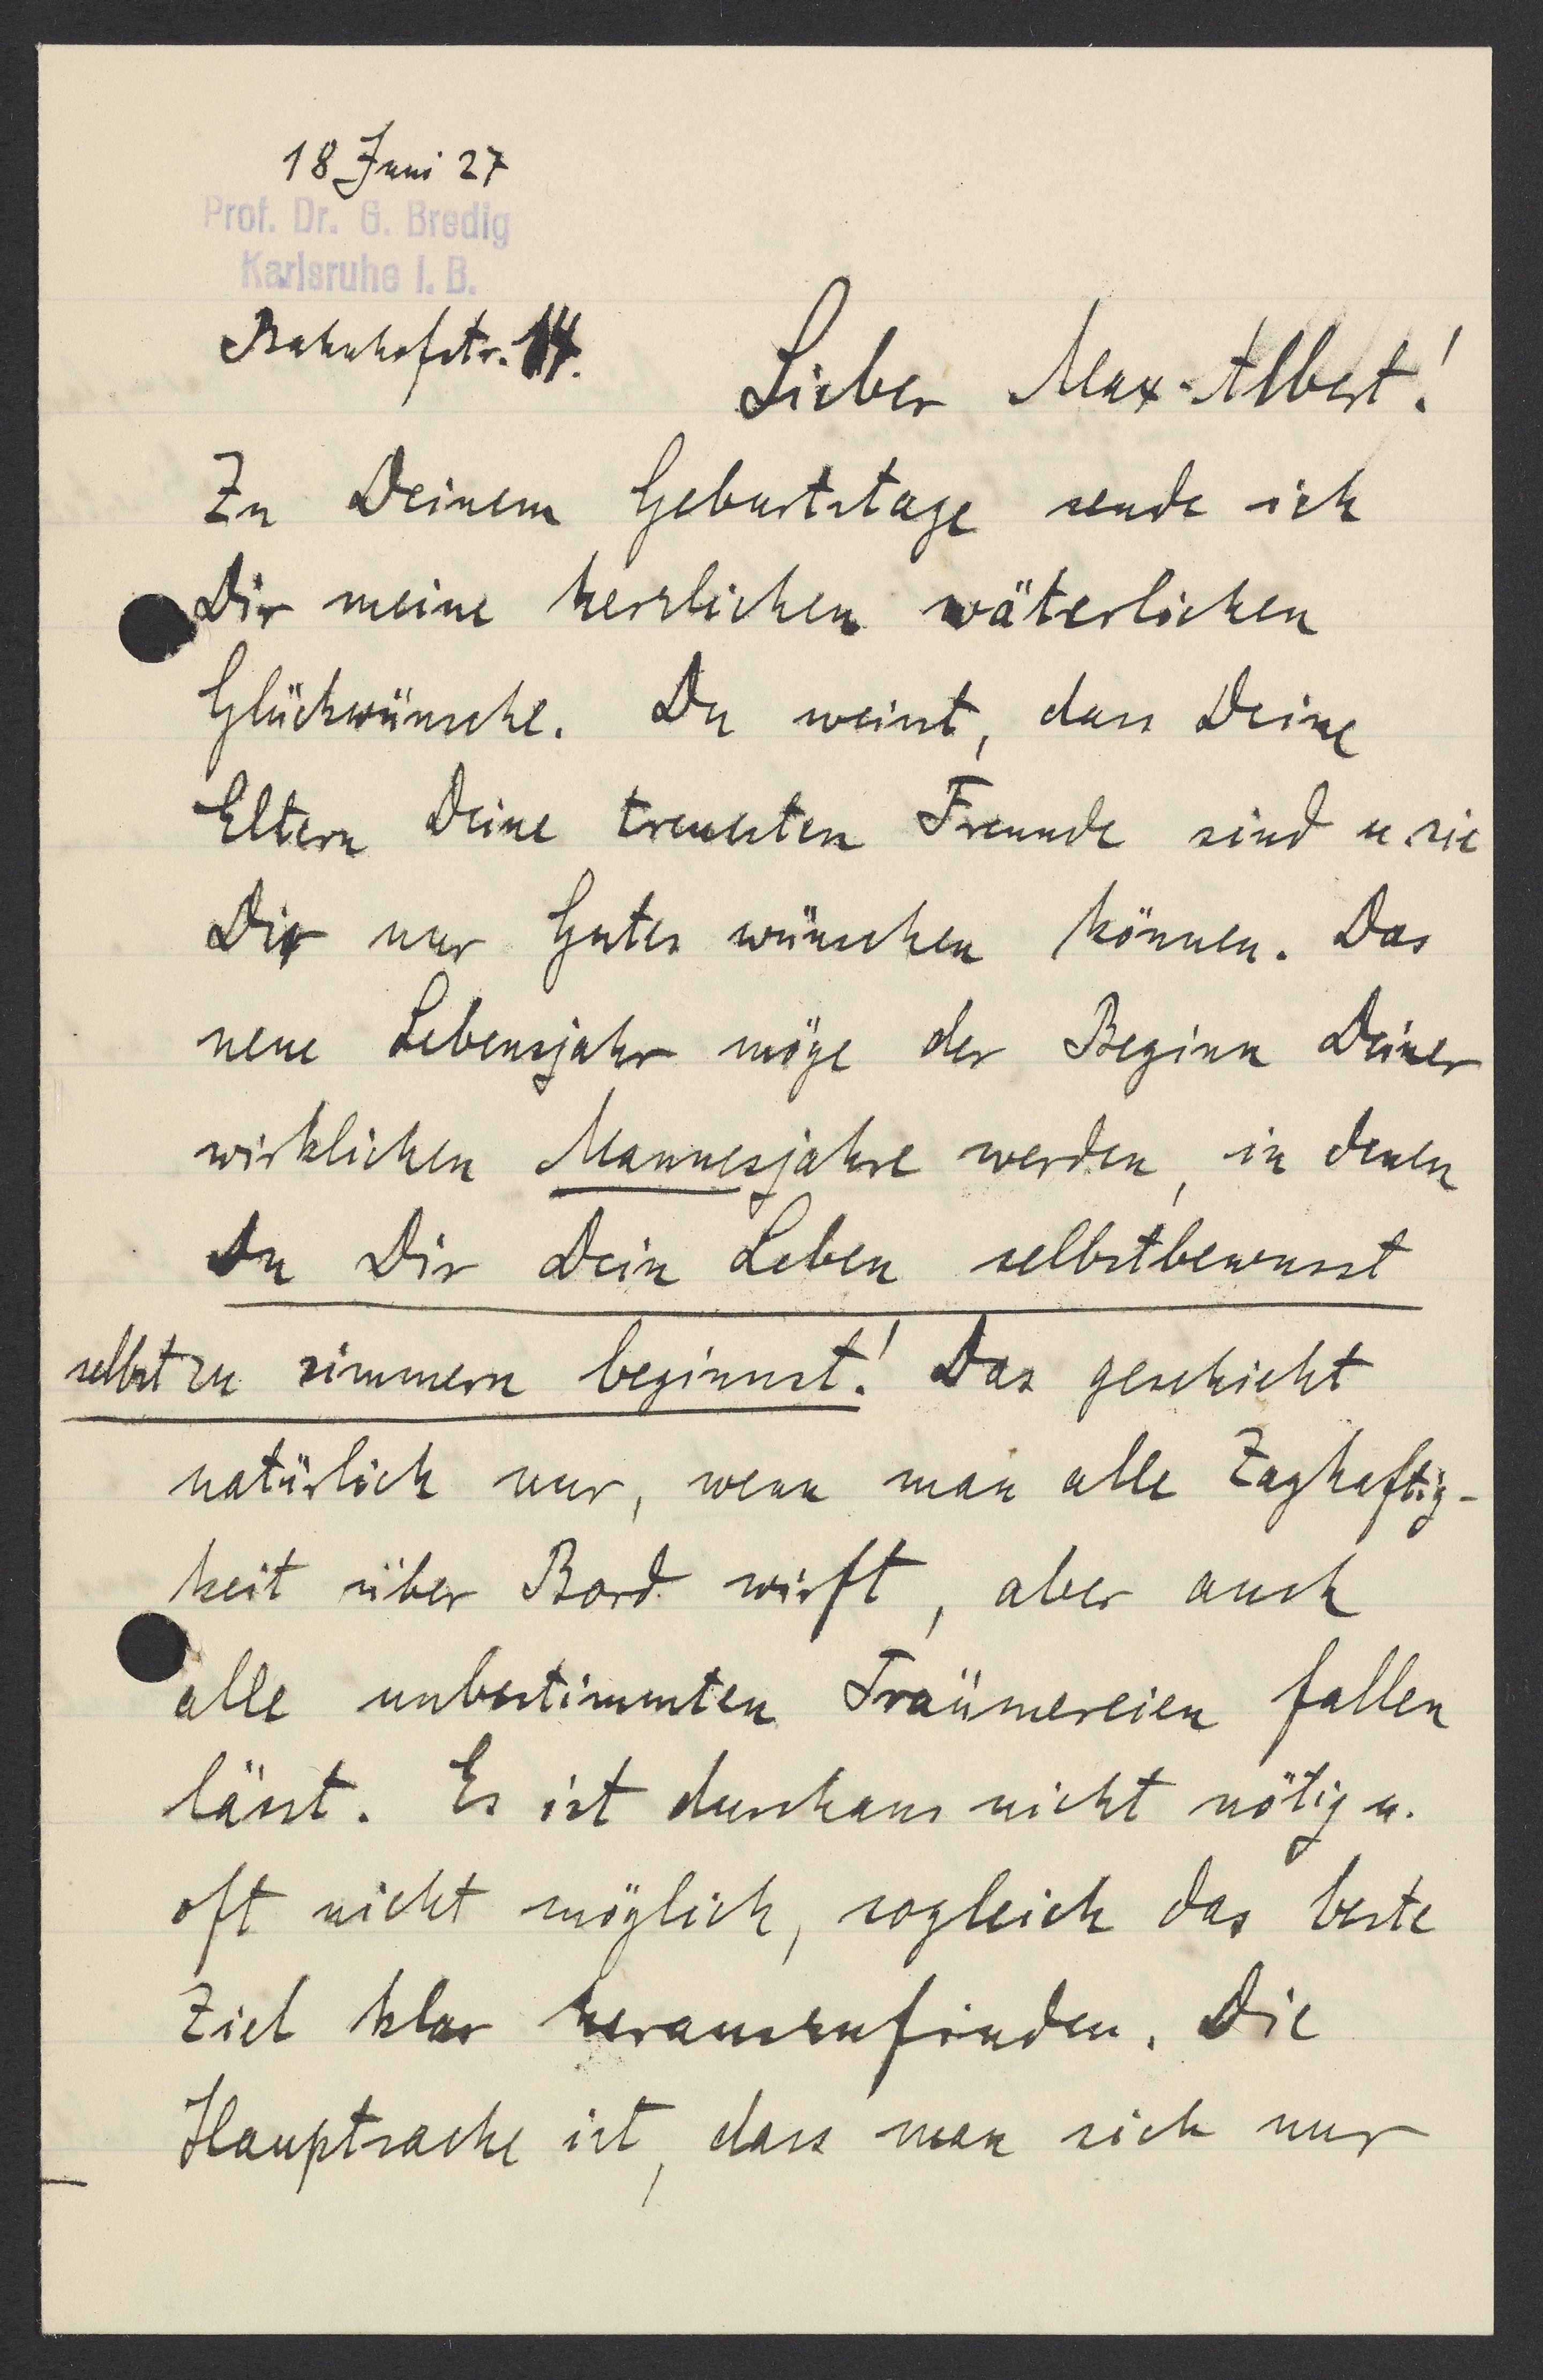 18 Juni 27
Prof. Dr. G. Bredig
Karlsruhe i. B.
Bahnhofstr. 14.
Lieber Max-Albert!
Zu Deinem Geburtstage sende ich
Dir meine herzlichen väterlichen
Glückwünsche. Du weisst, dass Deine
Eltern Deine treuesten Freunde sind u sie
Dir nur Gutes wünschen können. Das
neue Lebensjahr möge der Beginn Deiner
wirklichen Mannesjahre werden, in denen
Du Dir Dein Leben selbstbewusst
selbst zu zimmern beginnst! Das geschieht
natürlich nur, wenn man alle Zaghaftig-
keit über Bord wirft, aber auch
alle unbestimmten Träumereien fallen
lässt. Es ist durchaus nicht nötig u.
oft nicht möglich, sogleich das beste
Ziel klar herauszufinden. Die
Hauptsache ist, dass man sich nur